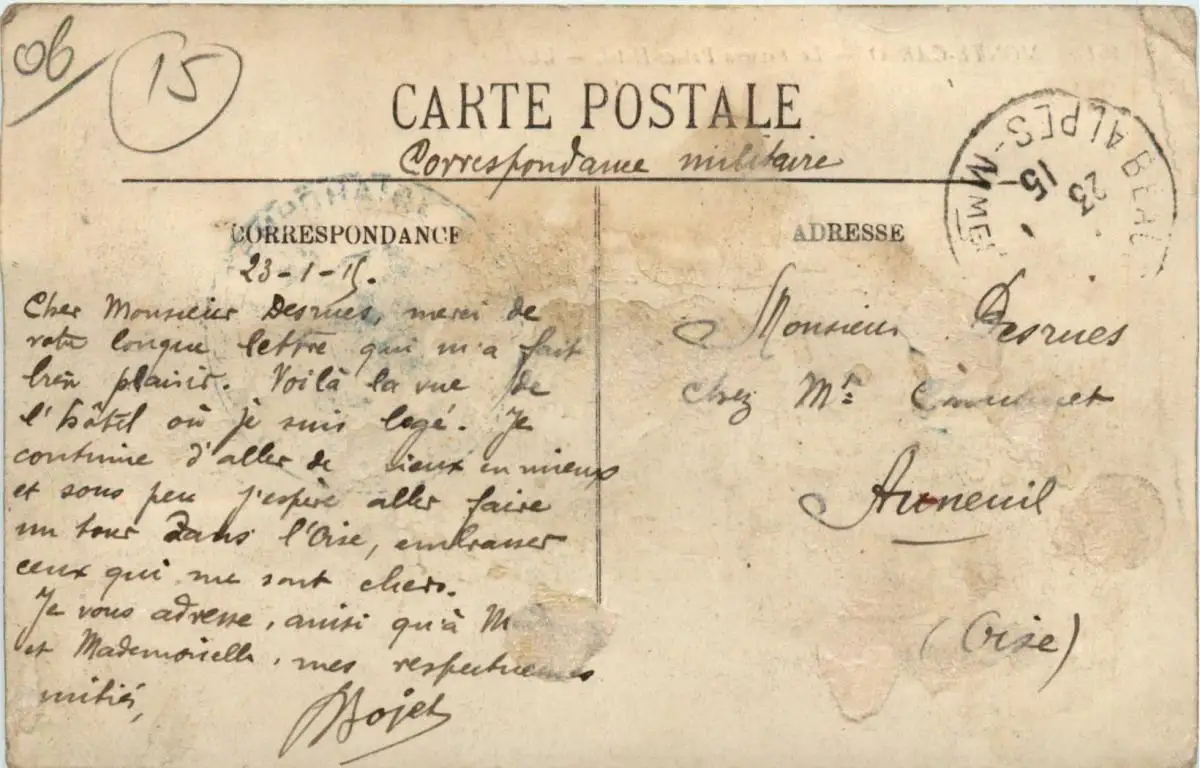 06
15
CARTE POSTALE
Correspondance militaire
BEAU
ALPES-MMES
23
15
CORRESPONDANCE
23-1-15.
Cher Monsieur Desrues, merci de
votre longue lettre qui m'a fait
bien plaisir. Voilà la vue de
l'hôtel où je suis logé. Je
continue d'aller de mieux en mieux
et sous peu j'espère aller faire
un tour dans l'Oise, embrasser
ceux qui me sont chers.
Je vous adresse, ainsi qu'à M
et Mademoiselle, mes respectueuses
amitiés,
ADRESSE
Monsieur Desrues
Chez Mr:
Auneuil
(Oise)